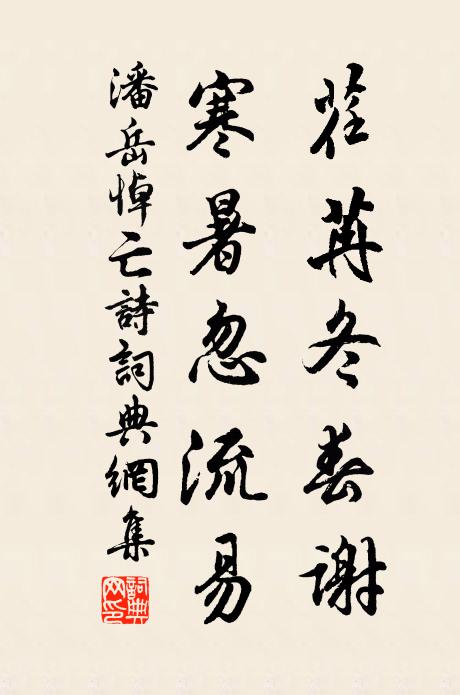 荏苒冬春謝
寒暑忽流易
潘岳悼亡詩詞典網集
詞典網印